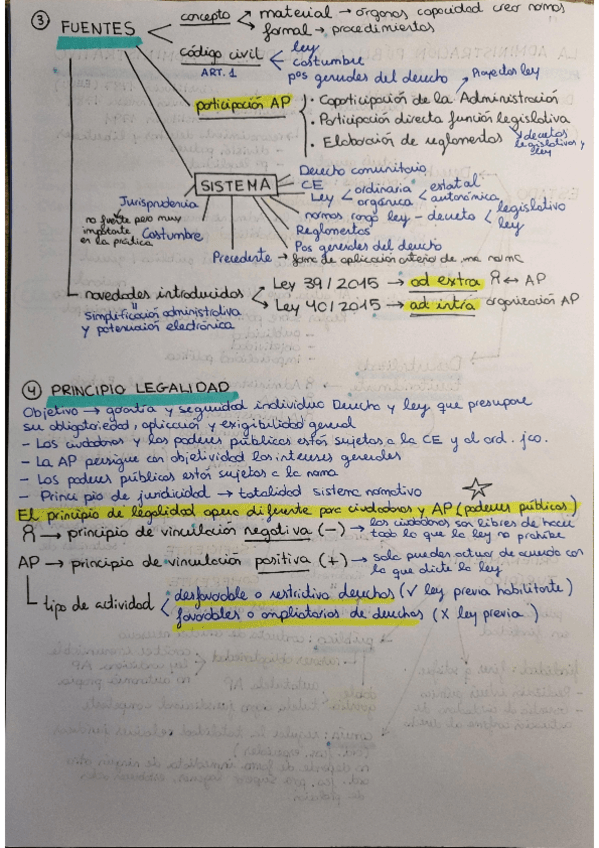 ③ FUENTES
concepto
material → órganos capacidad crear normas
formal → procedimientos
código civil
ART. 1
ley
costumbre
pos generales del derecho
participación AP
Proyectos ley
· Coparticipación de la Administración
· Participación directa función legislativa
· Elaboración de reglamentos
decretos legislativos y ley
SISTEMA
Derecho comunitario
CE
Ley
ordinaria
orgánica
estatal
autonómica
normas rango ley - decreto
legislativo
ley
Reglamentos
Pos generales del derecho
Precedente → forma de aplicación criterio de una norma
Costumbre
Jurisprudencia
no fuente pero muy
importante
en la práctica
novedades introducidas
simplificación administrativa
y potenciación electrónica
Ley 39/2015 → ad extra ↔ AP
Ley 40/2015 → ad intra organización AP
④ PRINCIPIO LEGALIDAD
Objetivo → garantía y seguridad individuo Derecho y ley, que presupone
su obligatoriedad, aplicación y exigibilidad general
- Los ciudadanos y los poderes públicos están sujetos a la CE y al ord. jco.
- La AP persigue con objetividad los intereses generales
- Los poderes públicos están sujetos a la norma
- Principio de juridicidad → totalidad sistema normativo
El principio de legalidad opera diferente para ciudadanos y AP (poderes públicos)
→ principio de vinculación negativa (-) → los ciudadanos son libres de hacer
todo lo que la ley no prohíbe
AP → principio de vinculación positiva (+) → solo pueden actuar de acuerdo con
lo que dicte la ley
tipo de actividad
desfavorable o restrictiva derechos (✓ ley previa habilitante)
favorables o ampliatorios de derechos (X ley previa)